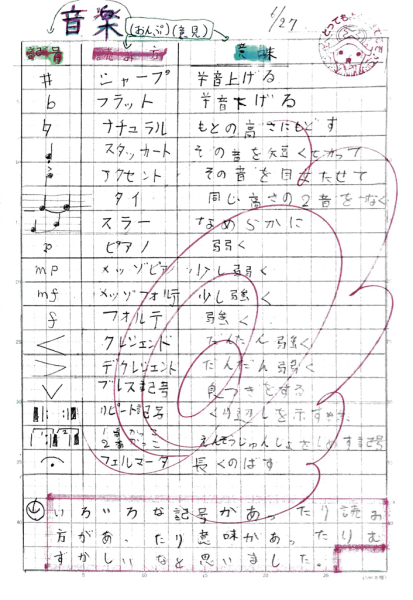 音楽
(おんぷ)(意見)
1/27
とっても
記号 読み方 意味
♯ シャープ 半音上げる
♭ フラット 半音下げる
♮ ナチュラル もとの高さにもどす
スタッカート その音を短く切って
アクセント その音を目立たせて
タイ 同じ高さの2音をつなぐ
スラー なめらかに
p ピアノ 弱く
mp メッゾピアノ 少し弱く
mf メッゾフォルテ 少し強く
f フォルテ 強く
クレシェンド だんだん強く
デクレシェンド だんだん弱く
ブレス記号 息つぎをする
リピート記号 くり返しを示す
1 2 1番かっこ
2番かっこ えんそうじゅんじょをしめす記号
フェルマータ 長くのばす
いろいろな記号があったり読み
方があったり意味があったりむ
ずかしいなと思いました。